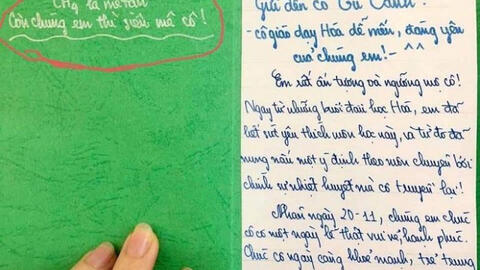 CH4 là mêtan
Còn chúng em thì siêu mê cô!
Gửi đến cô Tú Oanh!
- cô giáo dạy Hóa dễ mến, đáng yêu
của chúng em! - ^^
Em rất ấn tượng và ngưỡng mộ cô!
Ngay từ những buổi đầu học Hoá, em đã
rất yêu thích môn học này, và từ đó đã
nung nấu một ý định theo môn chuyên bởi
chính sự nhiệt huyết mà cô truyền lại!
Nhân ngày 20-11, chúng em chúc
cô có một ngày lễ thật vui vẻ, hạnh phúc.
Chúc cô ngày càng khoẻ mạnh, trẻ trung